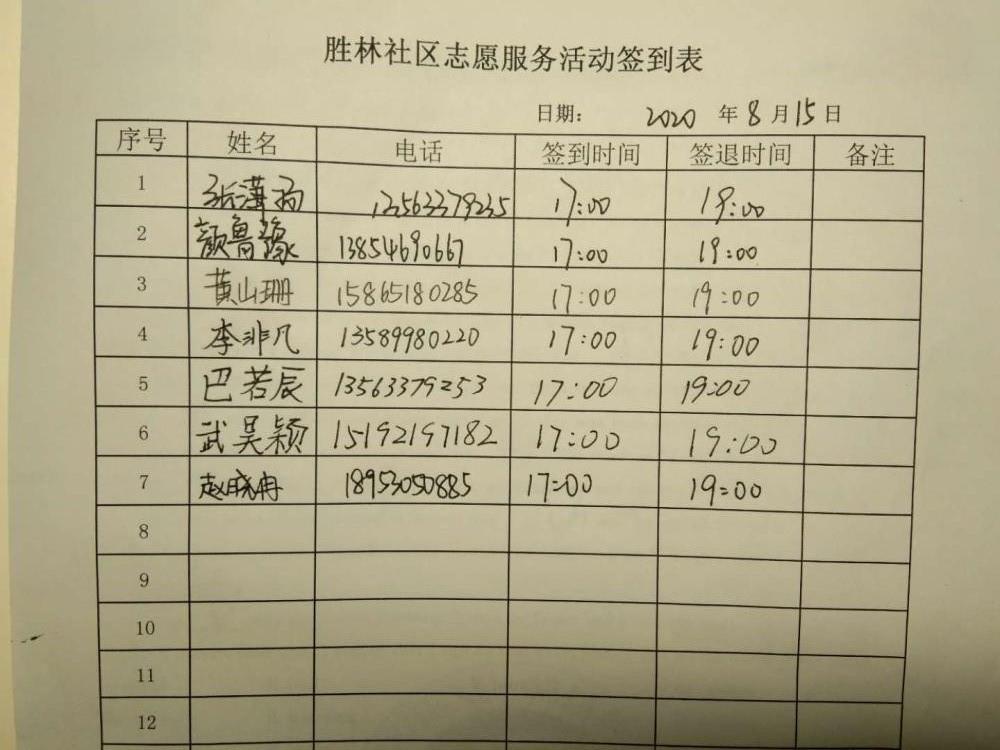 胜林社区志愿服务活动签到表
日期： 2020 年 8 月 15 日
序号 姓名 电话 签到时间 签退时间 备注
1 张潇扬 13563379235 17:00 19:00
2 颜鲁豫 13854690667 17:00 19:00
3 黄山珊 15865180285 17:00 19:00
4 李非凡 13589980220 17:00 19:00
5 巴若辰 13563379253 17:00 19:00
6 武昊颖 15192197182 17:00 19:00
7 赵晓冉 18953050885 17:00 19:00
8
9
10
11
12